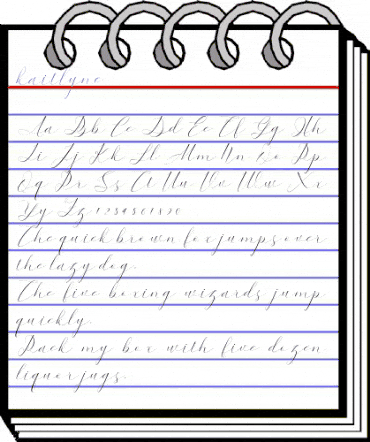 kaitlyne
Aa Bb Cc Dd Ee Ff Gg Hh
Ii Jj Kk Ll Mm Nn Oo Pp
Qq Rr Ss Tt Uu Vv Ww Xx
Yy Zz 1234567890
The quick brown fox jumps over
the lazy dog.
The five boxing wizards jump
quickly.
Pack my box with five dozen
liquor jugs.